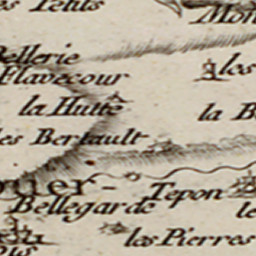 es Petits
Mon
Bellerie
Flavecour
los
la Hutte
la B
les Bertault
ouer-
Tepon
Bellegarde
le
los Pierres